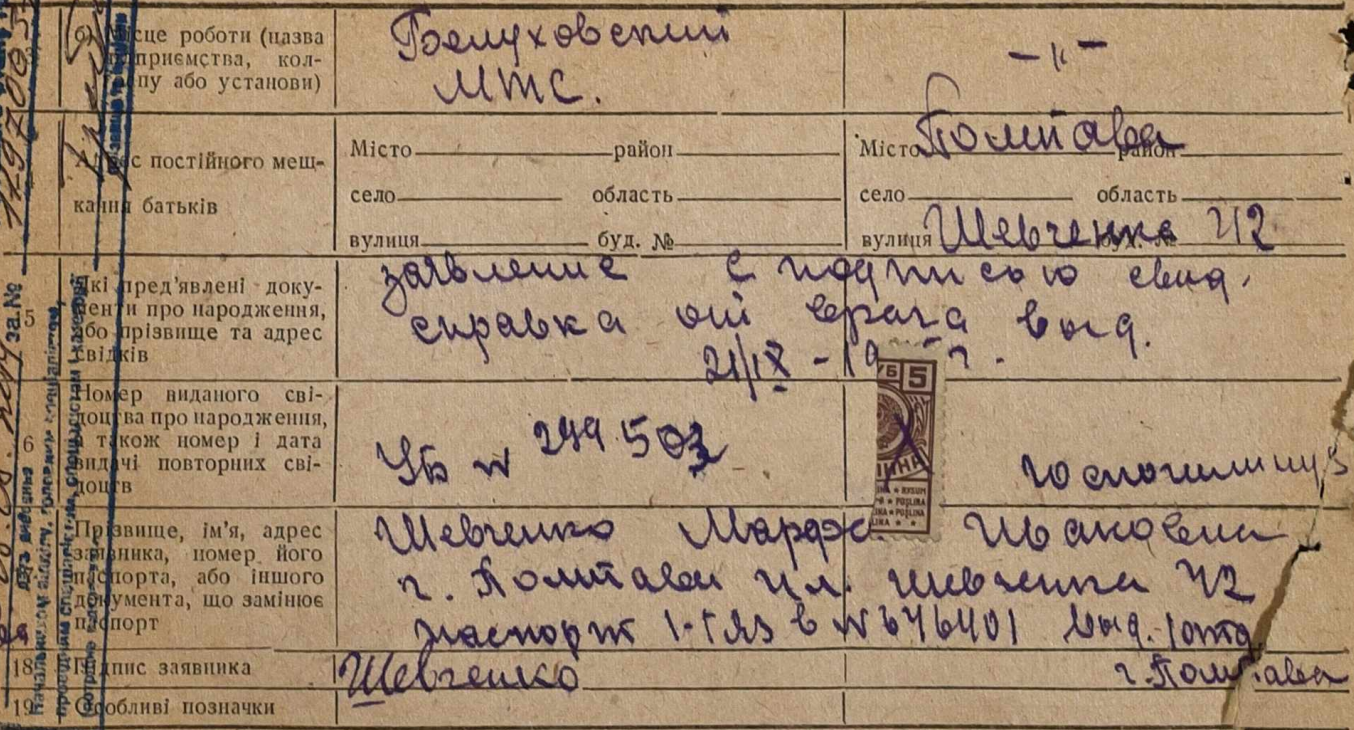 б) Місце роботи (назва
підприємства, кол-
госпу або установи)
Белуховский
МТС.
-〃-
Адрес постійного меш-
кання батьків
Місто район
село область
вулиця буд. №
Місто Полтава район
село область
вулиця Шевченка 42
5
Які пред'явлені доку-
менти про народження,
або прізвище та адрес
свідків
заявление с подписью свид.
справка от врача выд.
21/IX - 19 г.
6
Номер виданого сві-
доцтва про народження,
а також номер і дата
видачі повторних сві-
доцтв
УБ № 299503
госпошлину
5
Прізвище, ім'я, адрес
заявника, номер його
паспорта, або іншого
документа, що замінює
паспорт
Шевченко Марфа
г. Полтава ул. Шевченка 42
паспорт № 646401 выд. 1 отд
г. Полтава
18
Підпис заявника
Шевченко
19
Особливі позначки
за №